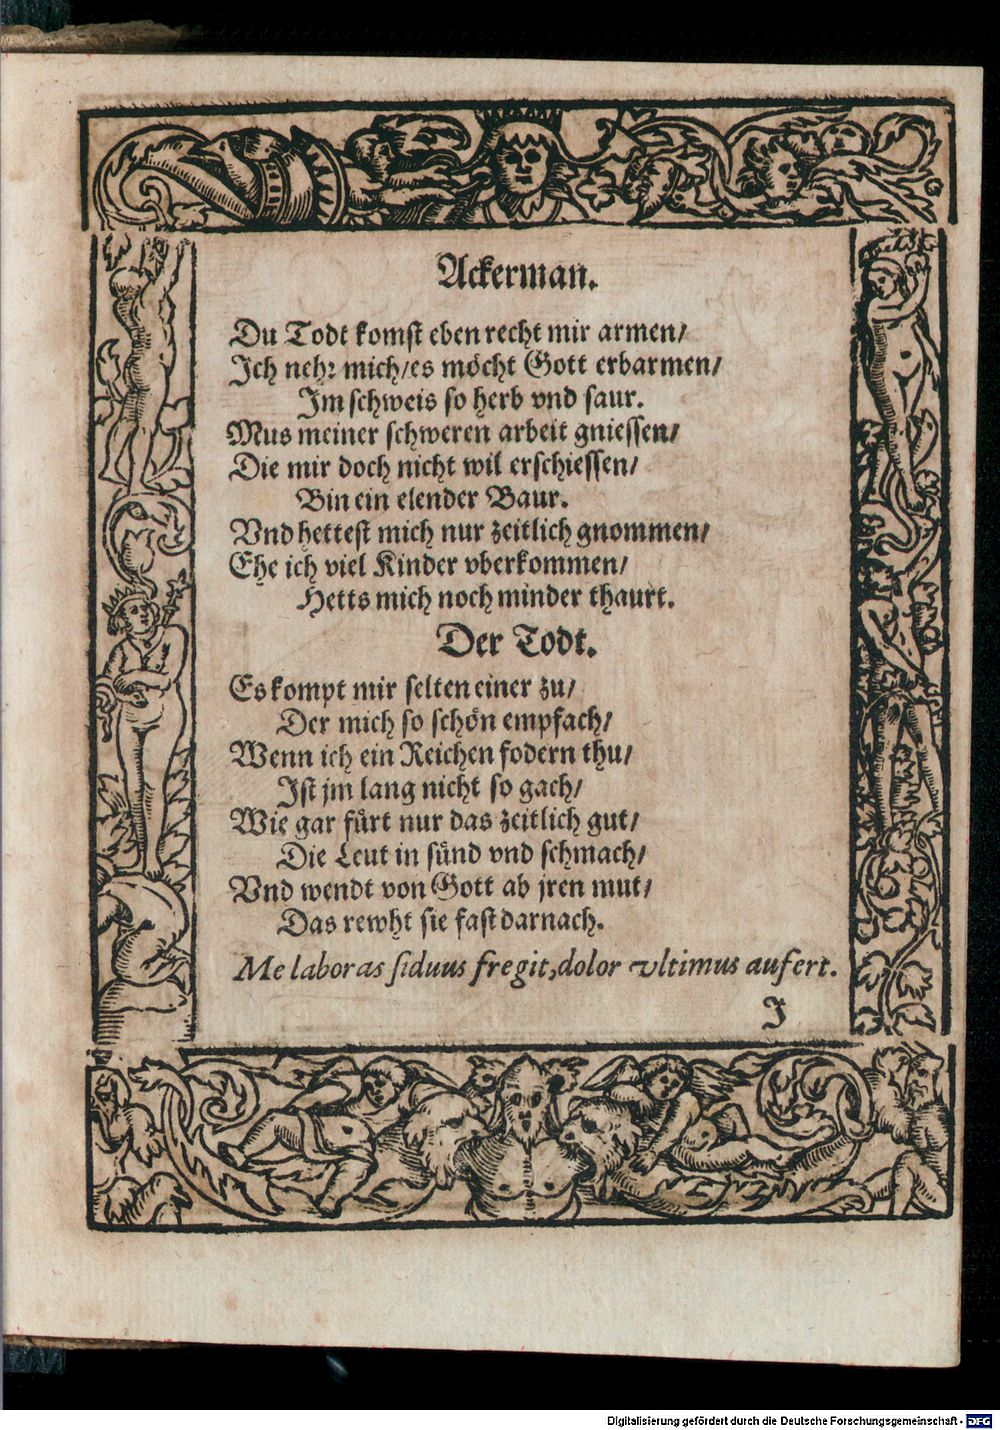 Ackerman.
Du Todt komst eben recht mir armen/
Ich nehr mich/es möcht Gott erbarmen/
Im schweis so herb vnd saur.
Mus meiner schweren arbeit gniessen/
Die mir doch nicht wil erschiessen/
Bin ein elender Baur.
Vnd hettest mich nur zeitlich gnommen/
Ehe ich viel Kinder vberkommen/
Hetts mich noch minder thaurt.
Der Todt.
Es kompt mir selten einer zu/
Der mich so schön empfach/
Wenn ich ein Reichen fodern thu/
Ist jm lang nicht so gach/
Wie gar fürt nur das zeitlich gut/
Die Leut in sünd vnd schmach/
Vnd wendt von Gott ab jren mut/
Das rewht sie fast darnach.
Me labor as siduus fregit, dolor vltimus aufert.
J
Digitalisierung gefördert durch die Deutsche Forschungsgemeinschaft - DFG